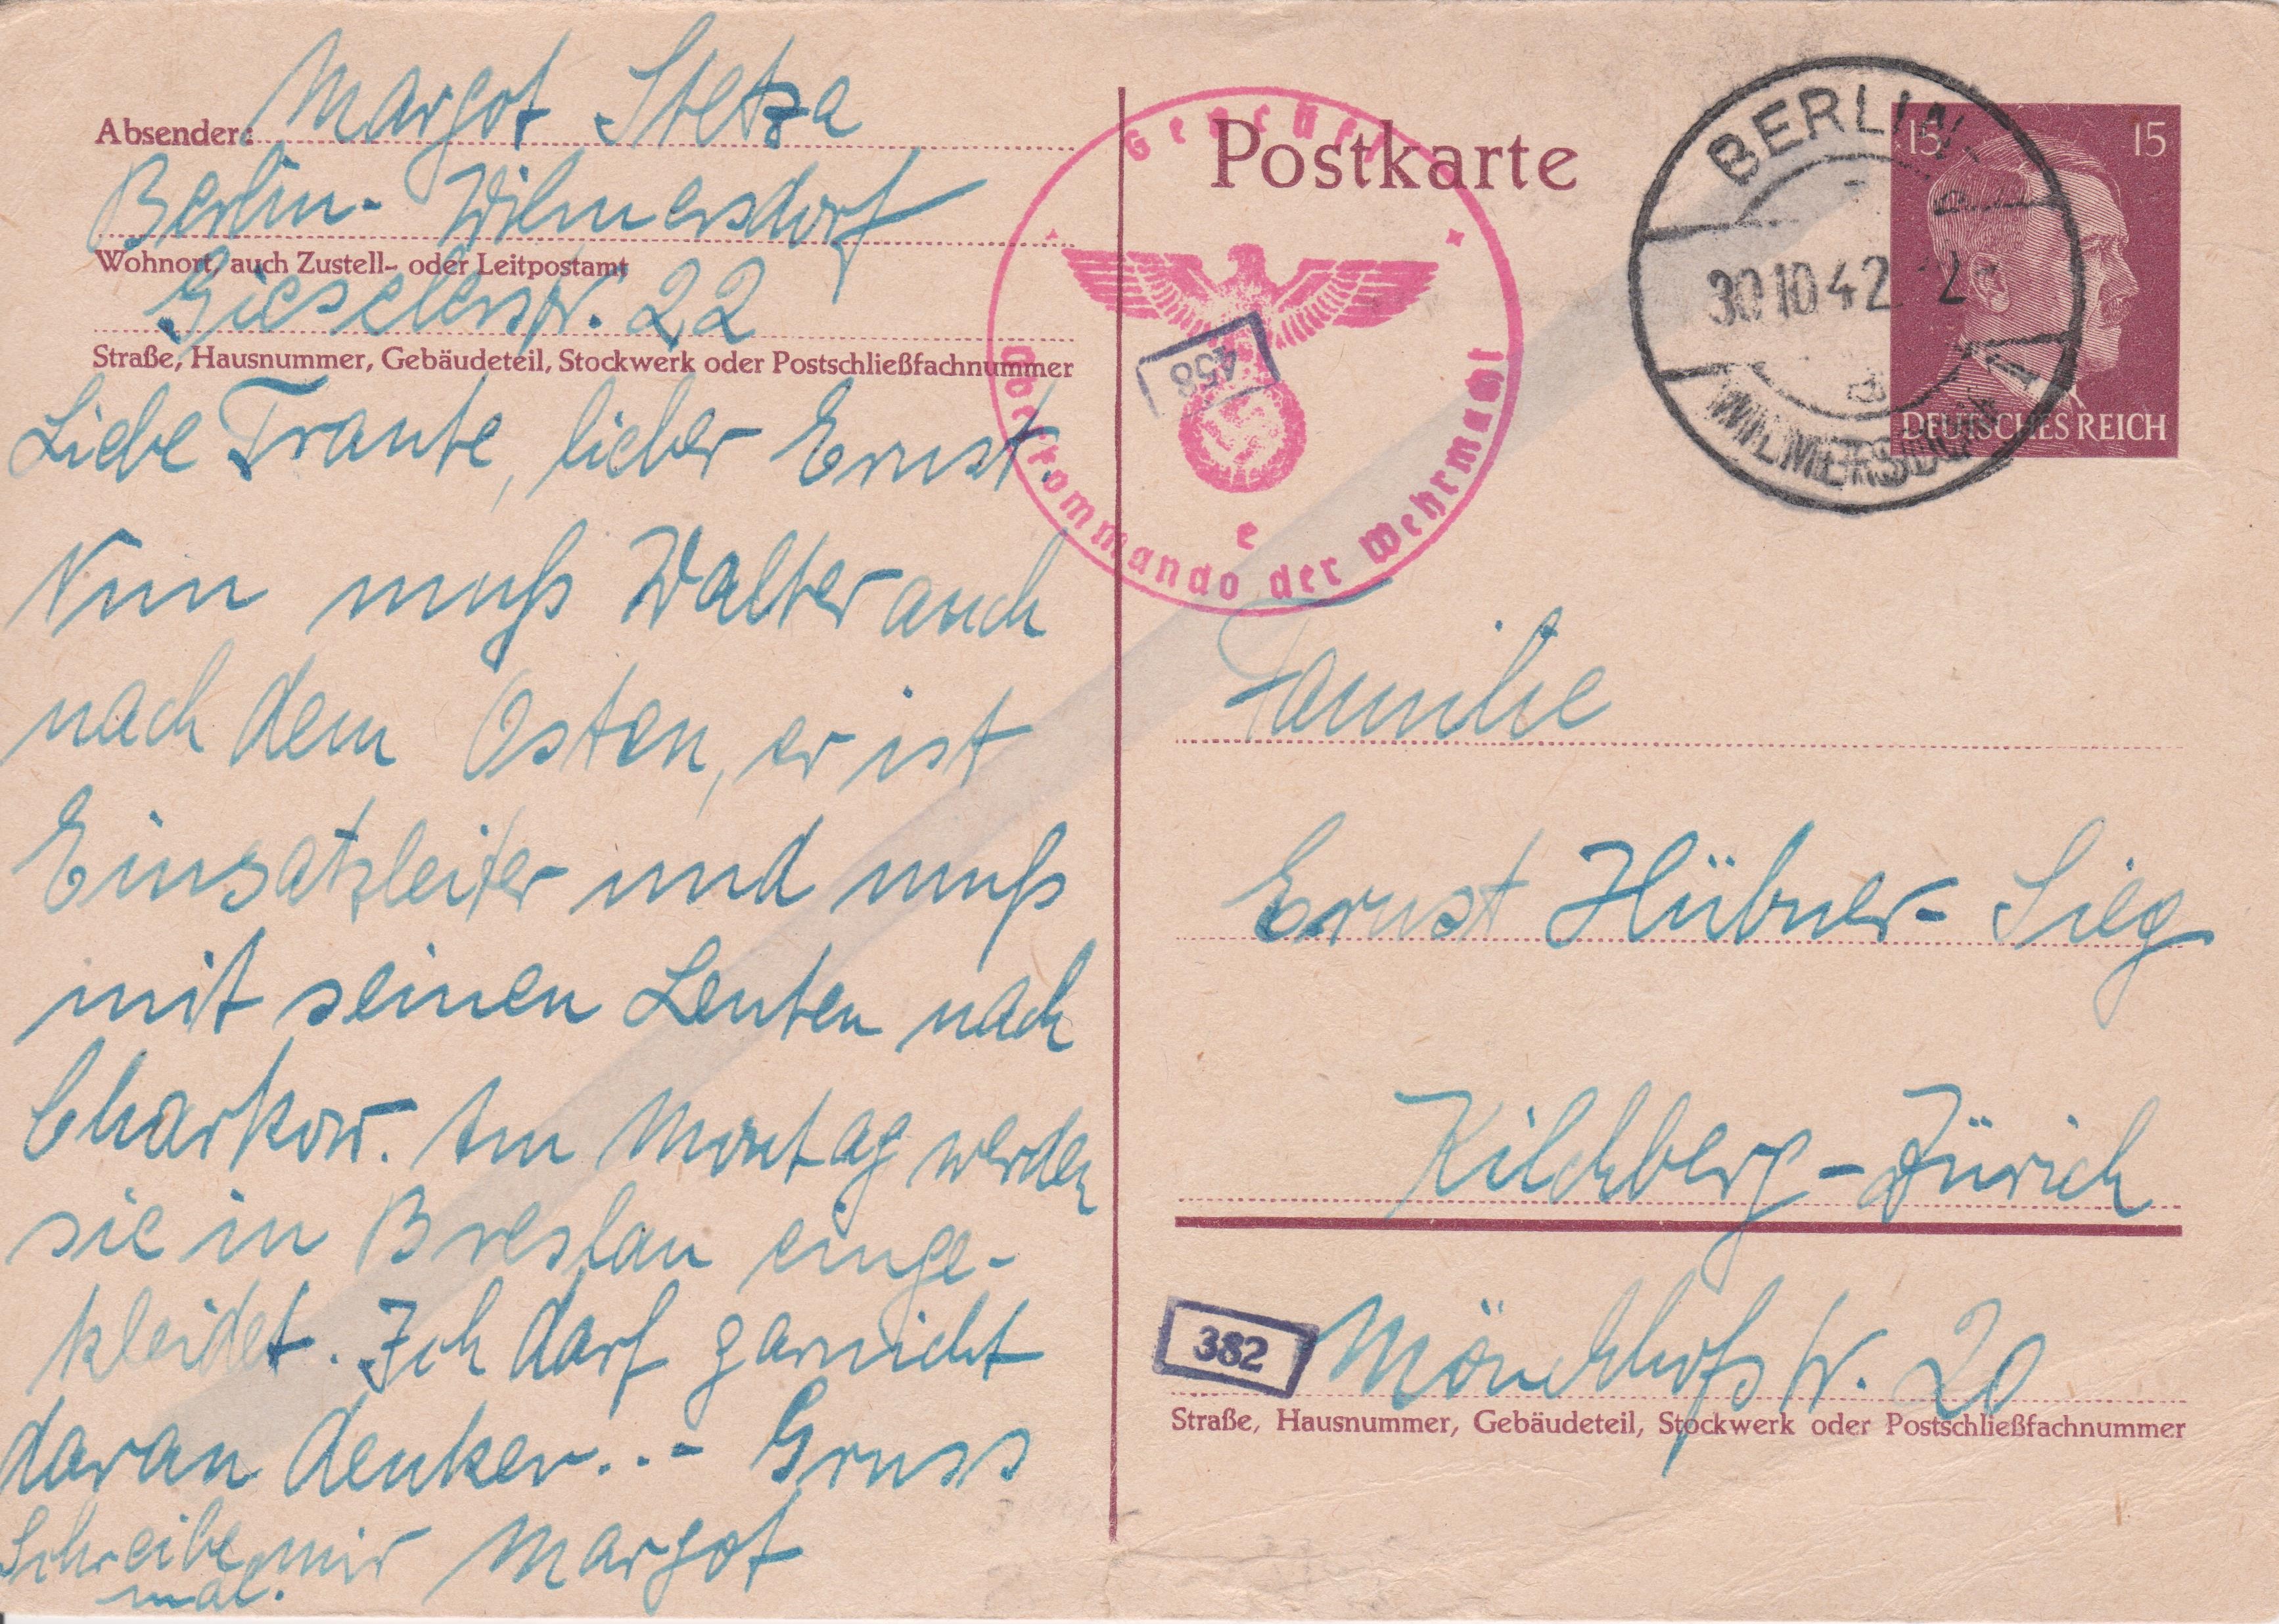 Absender: Margot Stetza
Berlin-Wilmersdorf
Wohnort, auch Zustell- oder Leitpostamt
Gieselerstr. 22
Straße, Hausnummer, Gebäudeteil, Stockwerk oder Postschließfachnummer
Liebe Traute, lieber Ernst.
Nun muß Walter auch
nach dem Osten, er ist
Einsatzleiter und muß
mit seinen Leuten nach
Charkow. Am Montag werden
sie in Breslau einge-
kleidet. Ich darf garnicht
daran denken..- Gruss
Schreibe mir Margot
mal.
Geöffnet
Oberkommando der Wehrmacht
e
458
Postkarte
BERLIN-
30.10.42
WILMERSDORF 1
15 15
DEUTSCHES REICH
Familie
Ernst Hübner-Sieg
Kilchberg-Zürich
382
Mönchhofstr. 20
Straße, Hausnummer, Gebäudeteil, Stockwerk oder Postschließfachnummer